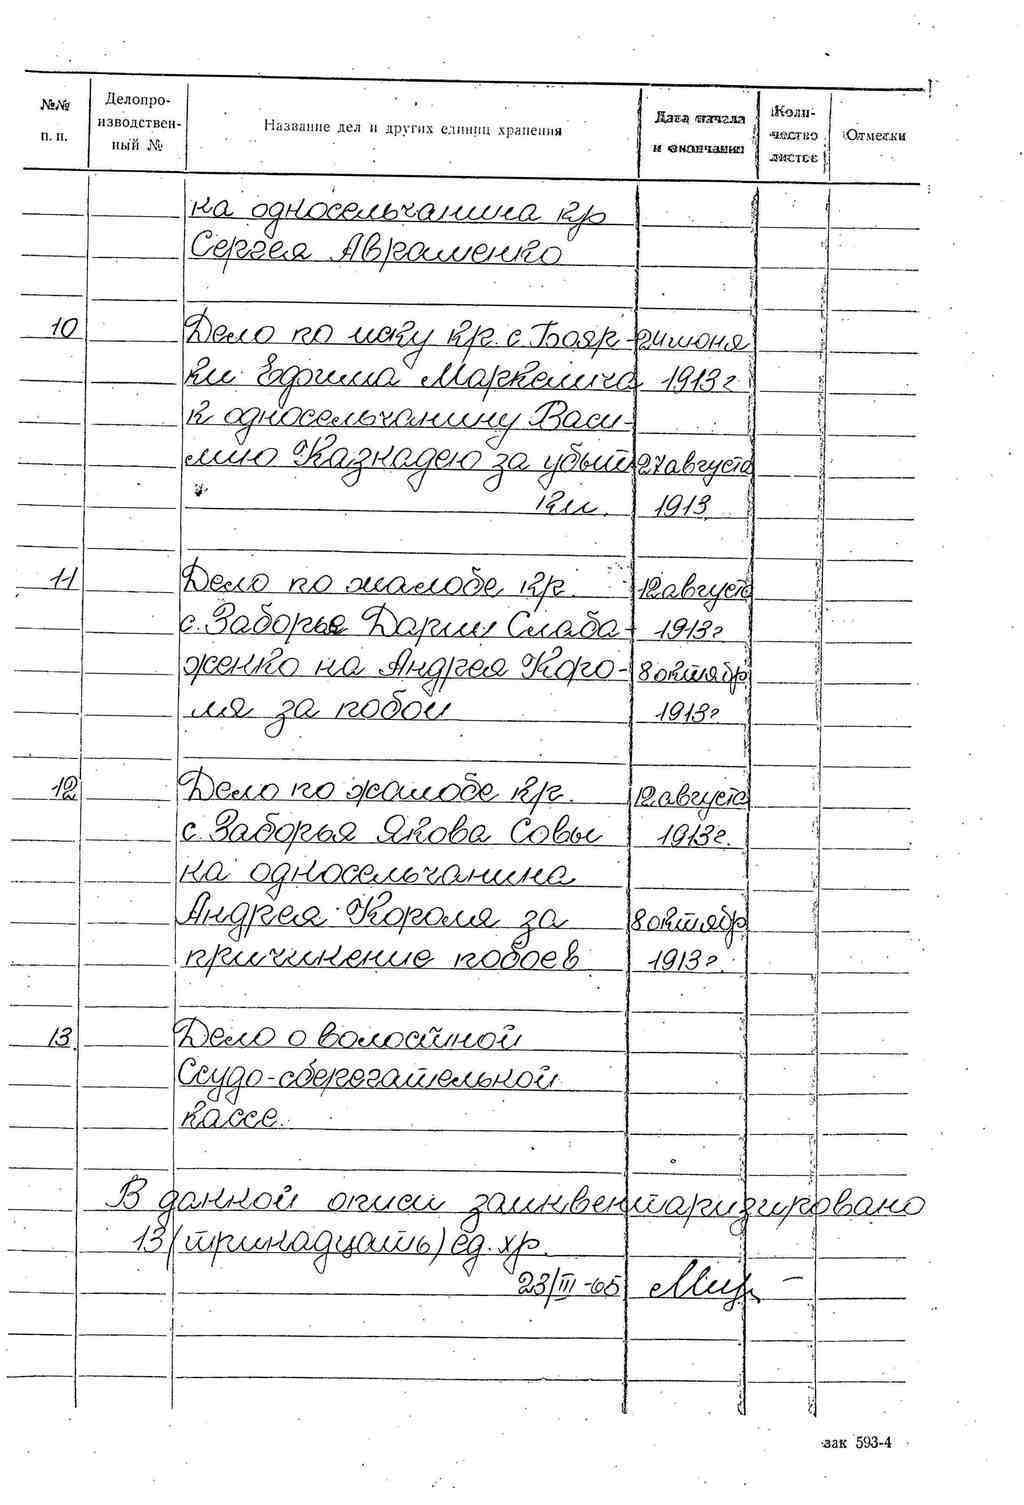 №№ п. п.
Делопро-
изводствен-
ный №
Название дел и других единиц хранения
Дата начала
и окончания
Коли-
чество
листов
Отметки
на односельчанина кр
Сергея Авраменко
10 Дело по иску кр. с. Бояр- 24 июня
ки Ефима Маркевича 1913 г
к односельчанину Васи-
лию Казнадею за убыт 27 августа
ки. 1913
11 Дело по жалобе кр. 12 августа
с. Заборья Дарии Слаба- 1913 г
женко на Андрея Коро- 8 октябр
ля за побои 1913 г
12 Дело по жалобе кр. 12 августа
с. Заборья Якова Совы 1913 г.
на односельчанина
Андрея Короля за 8 октябр
причинение побоев 1913 г.
13. Дело о волостной
Ссудо-сберегательной
кассе.
В данной описи заинвентаризировано
13 (тринадцать) ед. хр.
23/III-65
зак 593-4